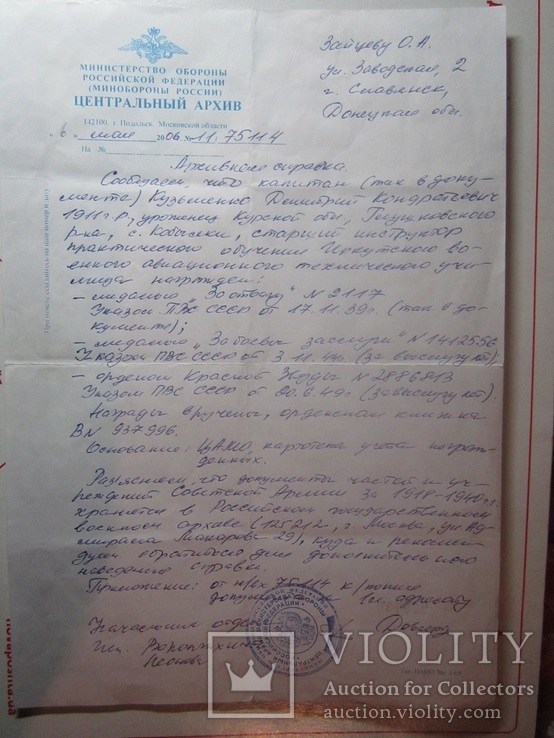 МИНИСТЕРСТВО ОБОРОНЫ
РОССИЙСКОЙ ФЕДЕРАЦИИ
(МИНОБОРОНЫ РОССИИ)
ЦЕНТРАЛЬНЫЙ АРХИВ
142100, г. Подольск, Московской области
"6" мая 2006 № 11. 75114
На №
Зайцеву О.А.
ул. Заводская, 2
г. Славянск,
Донецкая обл.
Архивная справка.
Сообщаем, что капитан (так в доку-
менте) Кузьменко Дмитрий Кондратьевич
1911 г.р., уроженец Курской обл., Глушковского
р-на, с. Кобылки, старший инструктор
практического обучения Иркутского во-
енного авиационного технического учи-
лища награжден:
– медалью "За отвагу" N 2117
Указом ПВС СССР от 17.11.39г. (так в до-
кументе);
– медалью "За боевые заслуги" N 1412556
Указом ПВС СССР от 3.11.44г. (за выслугу лет)
– орденом Красной Звезды N 2886813
Указом ПВС СССР от 20.6.49г. (за выслугу лет).
Награды вручены, орденская книжка
В N 937996.
Основание: ЦАМО, картотека учета награж-
денных.
Разъясняем, что документы частей и уч-
реждений Советской Армии за 1918-1940 г.г.
хранятся в Российском государственном
военном архиве (125212, г. Москва, ул. Ад-
мирала Макарова 29), куда и рекомен-
дуем обратиться для дополнительного
наведения справки.
Приложение: от н/вх 75114 к/копия
1 л. адресату
Начальник отдела
novaposhta.ua
VIOLITY
Auction for Collectors
auction.violity.com